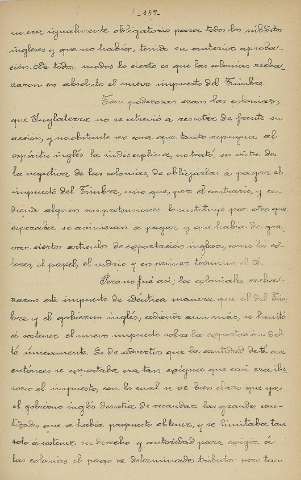 - 119 -
un ser igualmente obligatorio para todos los súbditos
ingleses y que no había tenido su anterior aproba-
ción. De todos modos lo cierto es que las colonias recha-
zaron en absoluto el nuevo impuesto del Timbre.
Tan poderosas eran las colonias,
que Inglaterra no se atrevió a resolver de frente su
acción, y no obstante ser cosa que tanto repugna al
espíritu inglés la indisciplina, no trató en vista de
la negativa de las colonias, de obligarlas a pagar el
impuesto del Timbre, sino que, por el contrario, y en
dicha algun lo sustituyó por otro que
esperaba se avinieran a pagar, y que había de gra-
var ciertos artículos de exportación inglesa, como los co-
lores, el papel, el vidrio y en número el té.
Pero no fué así, las colonias recha-
zaron este impuesto de idéntica manera que el del Tim-
bre y el gobierno inglés, cediendo aun más, se limitó
á sostener el nuevo impuesto sobre la exportación del
té únicamente. Es de advertir que la cantidad de té que
entonces se exportaba era tan exigua que casi era ilu-
sorio el impuesto, con lo cual se ve bien claro que ya
el gobierno inglés desistía de recaudar las grandes can-
tidades que se había propuesto obtener, y se limitaba tan
solo á sostener su derecho y autoridad para exigir á
las colonias el pago de determinados tributos pero tan